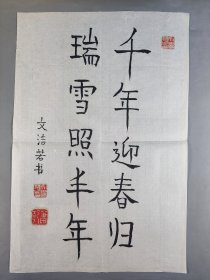 千年迎春归
瑞雪照丰年
文洁若书